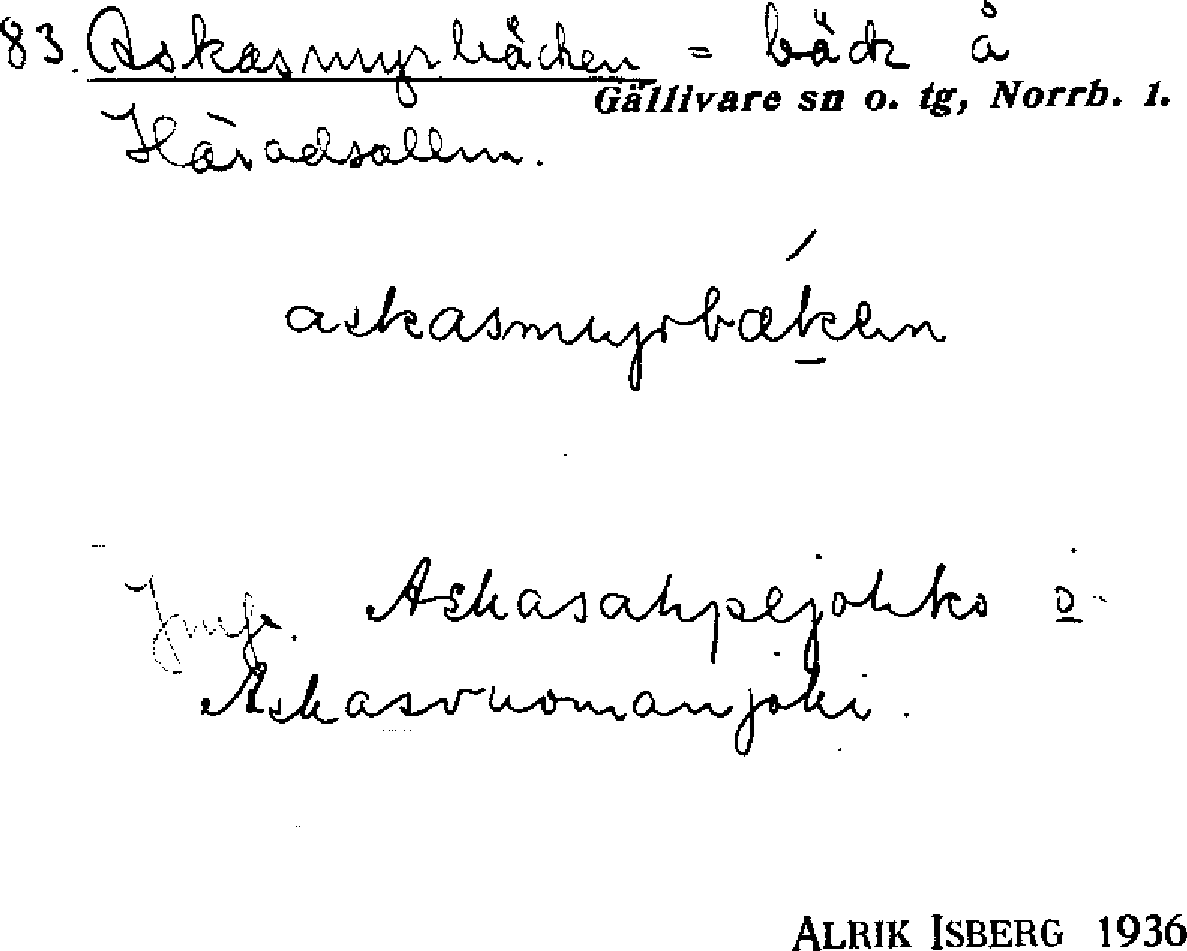 83. Askasmyrbäcken = bäck å
Gällivare sn o. tg, Norrb. l.
Häradsallm.
askasmyrbæken
Jmf. Askasahpejohko o
Askasvuomanjoki.
ALRIK ISBERG 1936